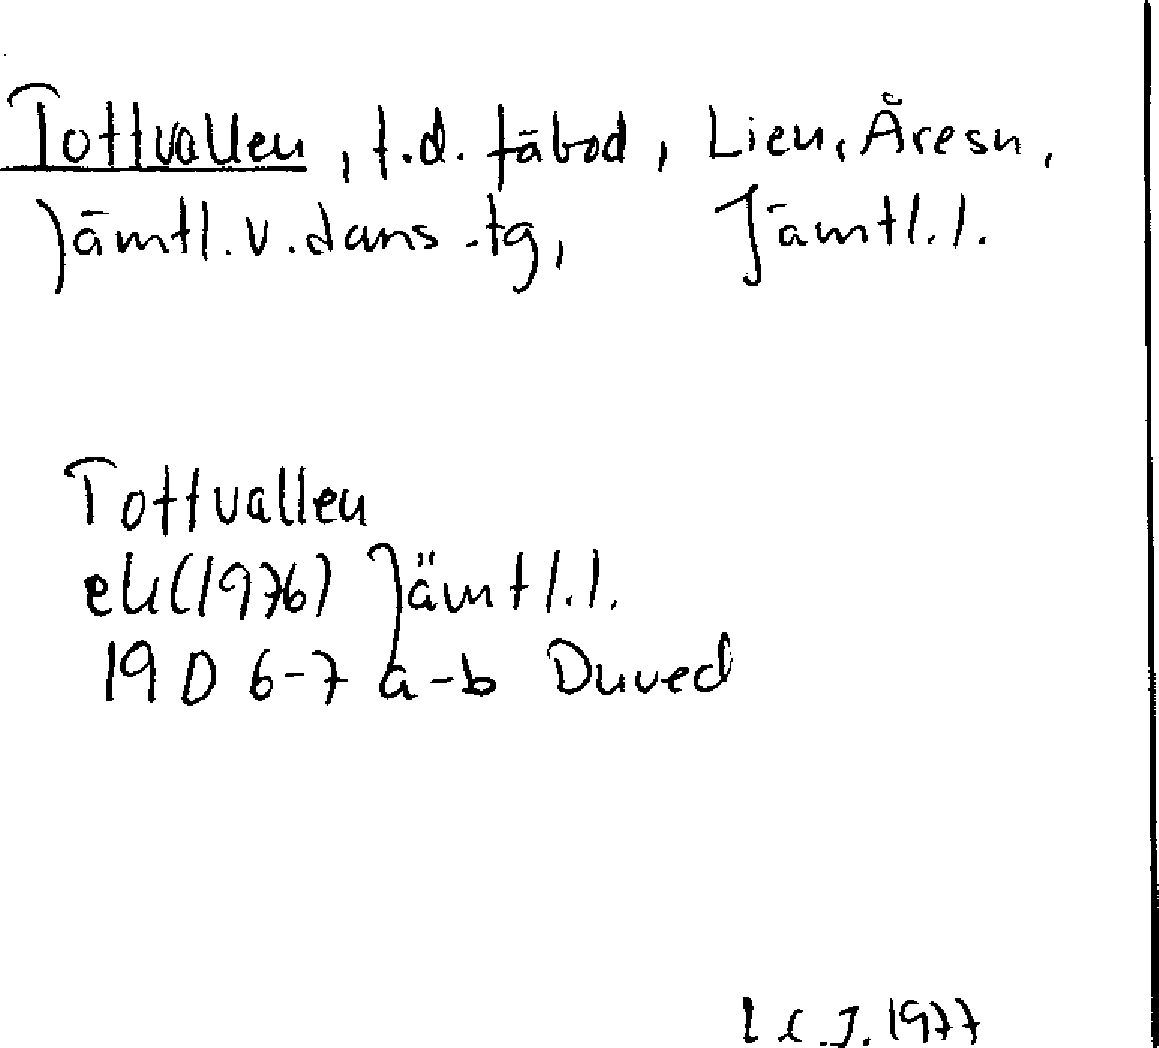 Tottvallen, f.d. fäbod, Lien, Åresn,
Jämtl.v.doms.tg, Jämtl.l.
Tottvallen
ek(1976) Jämtl.l.
19 D 6-7 a-b Duved
1977